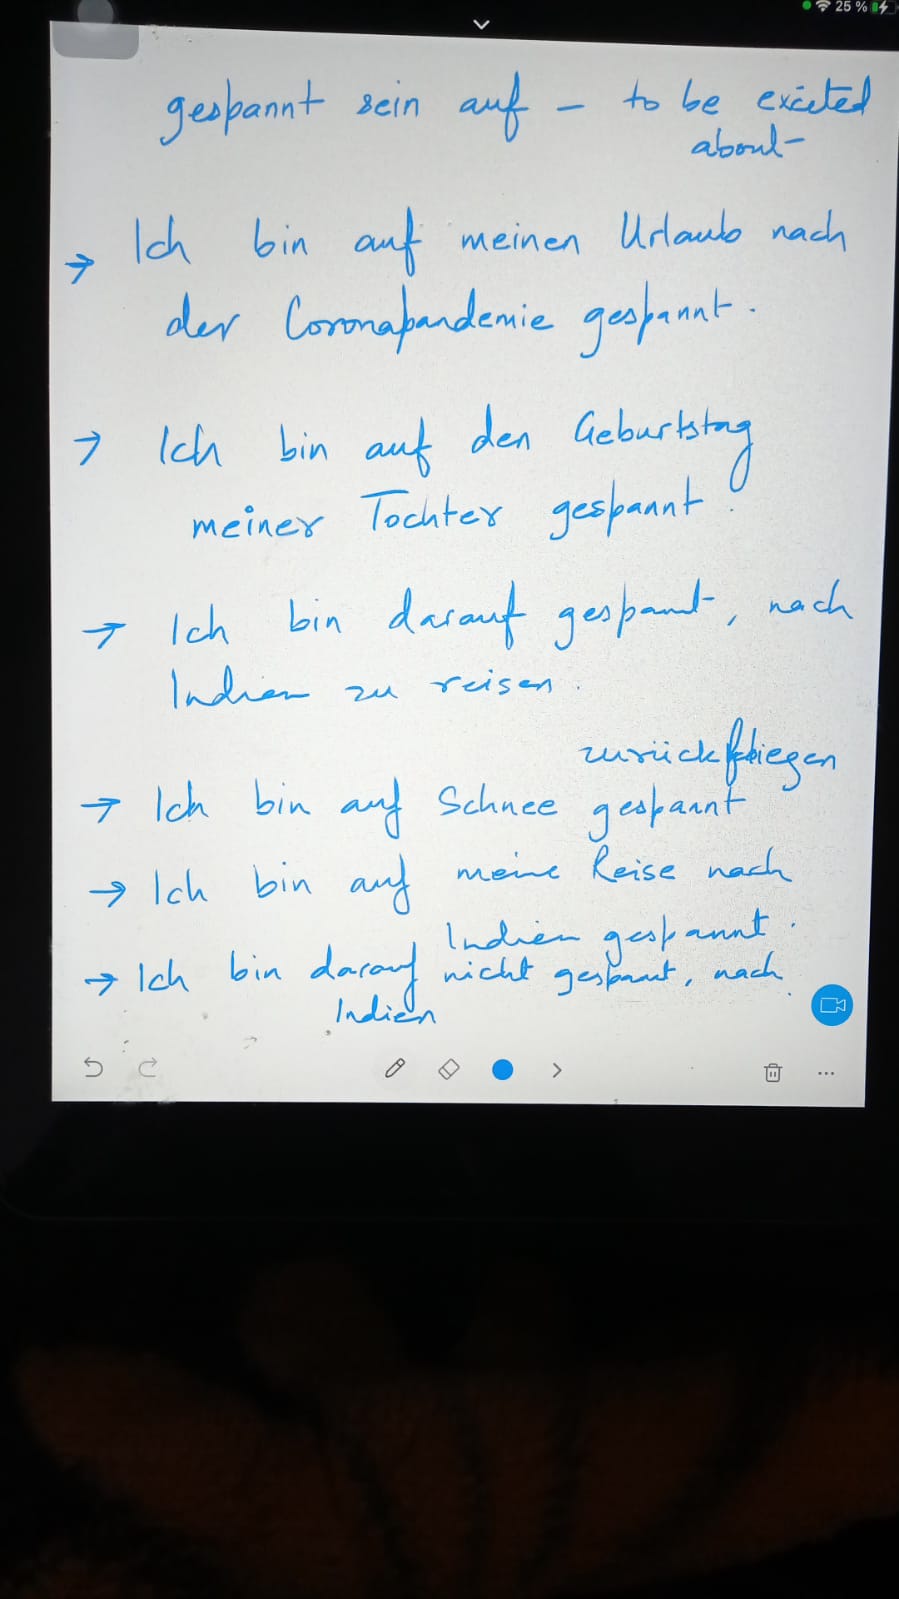 25 %
gespannt sein auf – to be excited
about
→ Ich bin auf meinen Urlaub nach
der Coronapandemie gespannt.
→ Ich bin auf den Geburtstag
meiner Tochter gespannt.
→ Ich bin darauf gespannt, nach
Indien zu reisen.
zurückfliegen
→ Ich bin auf Schnee gespannt
→ Ich bin auf meine Reise nach
Indien gespannt.
→ Ich bin darauf nicht gespannt, nach
Indien